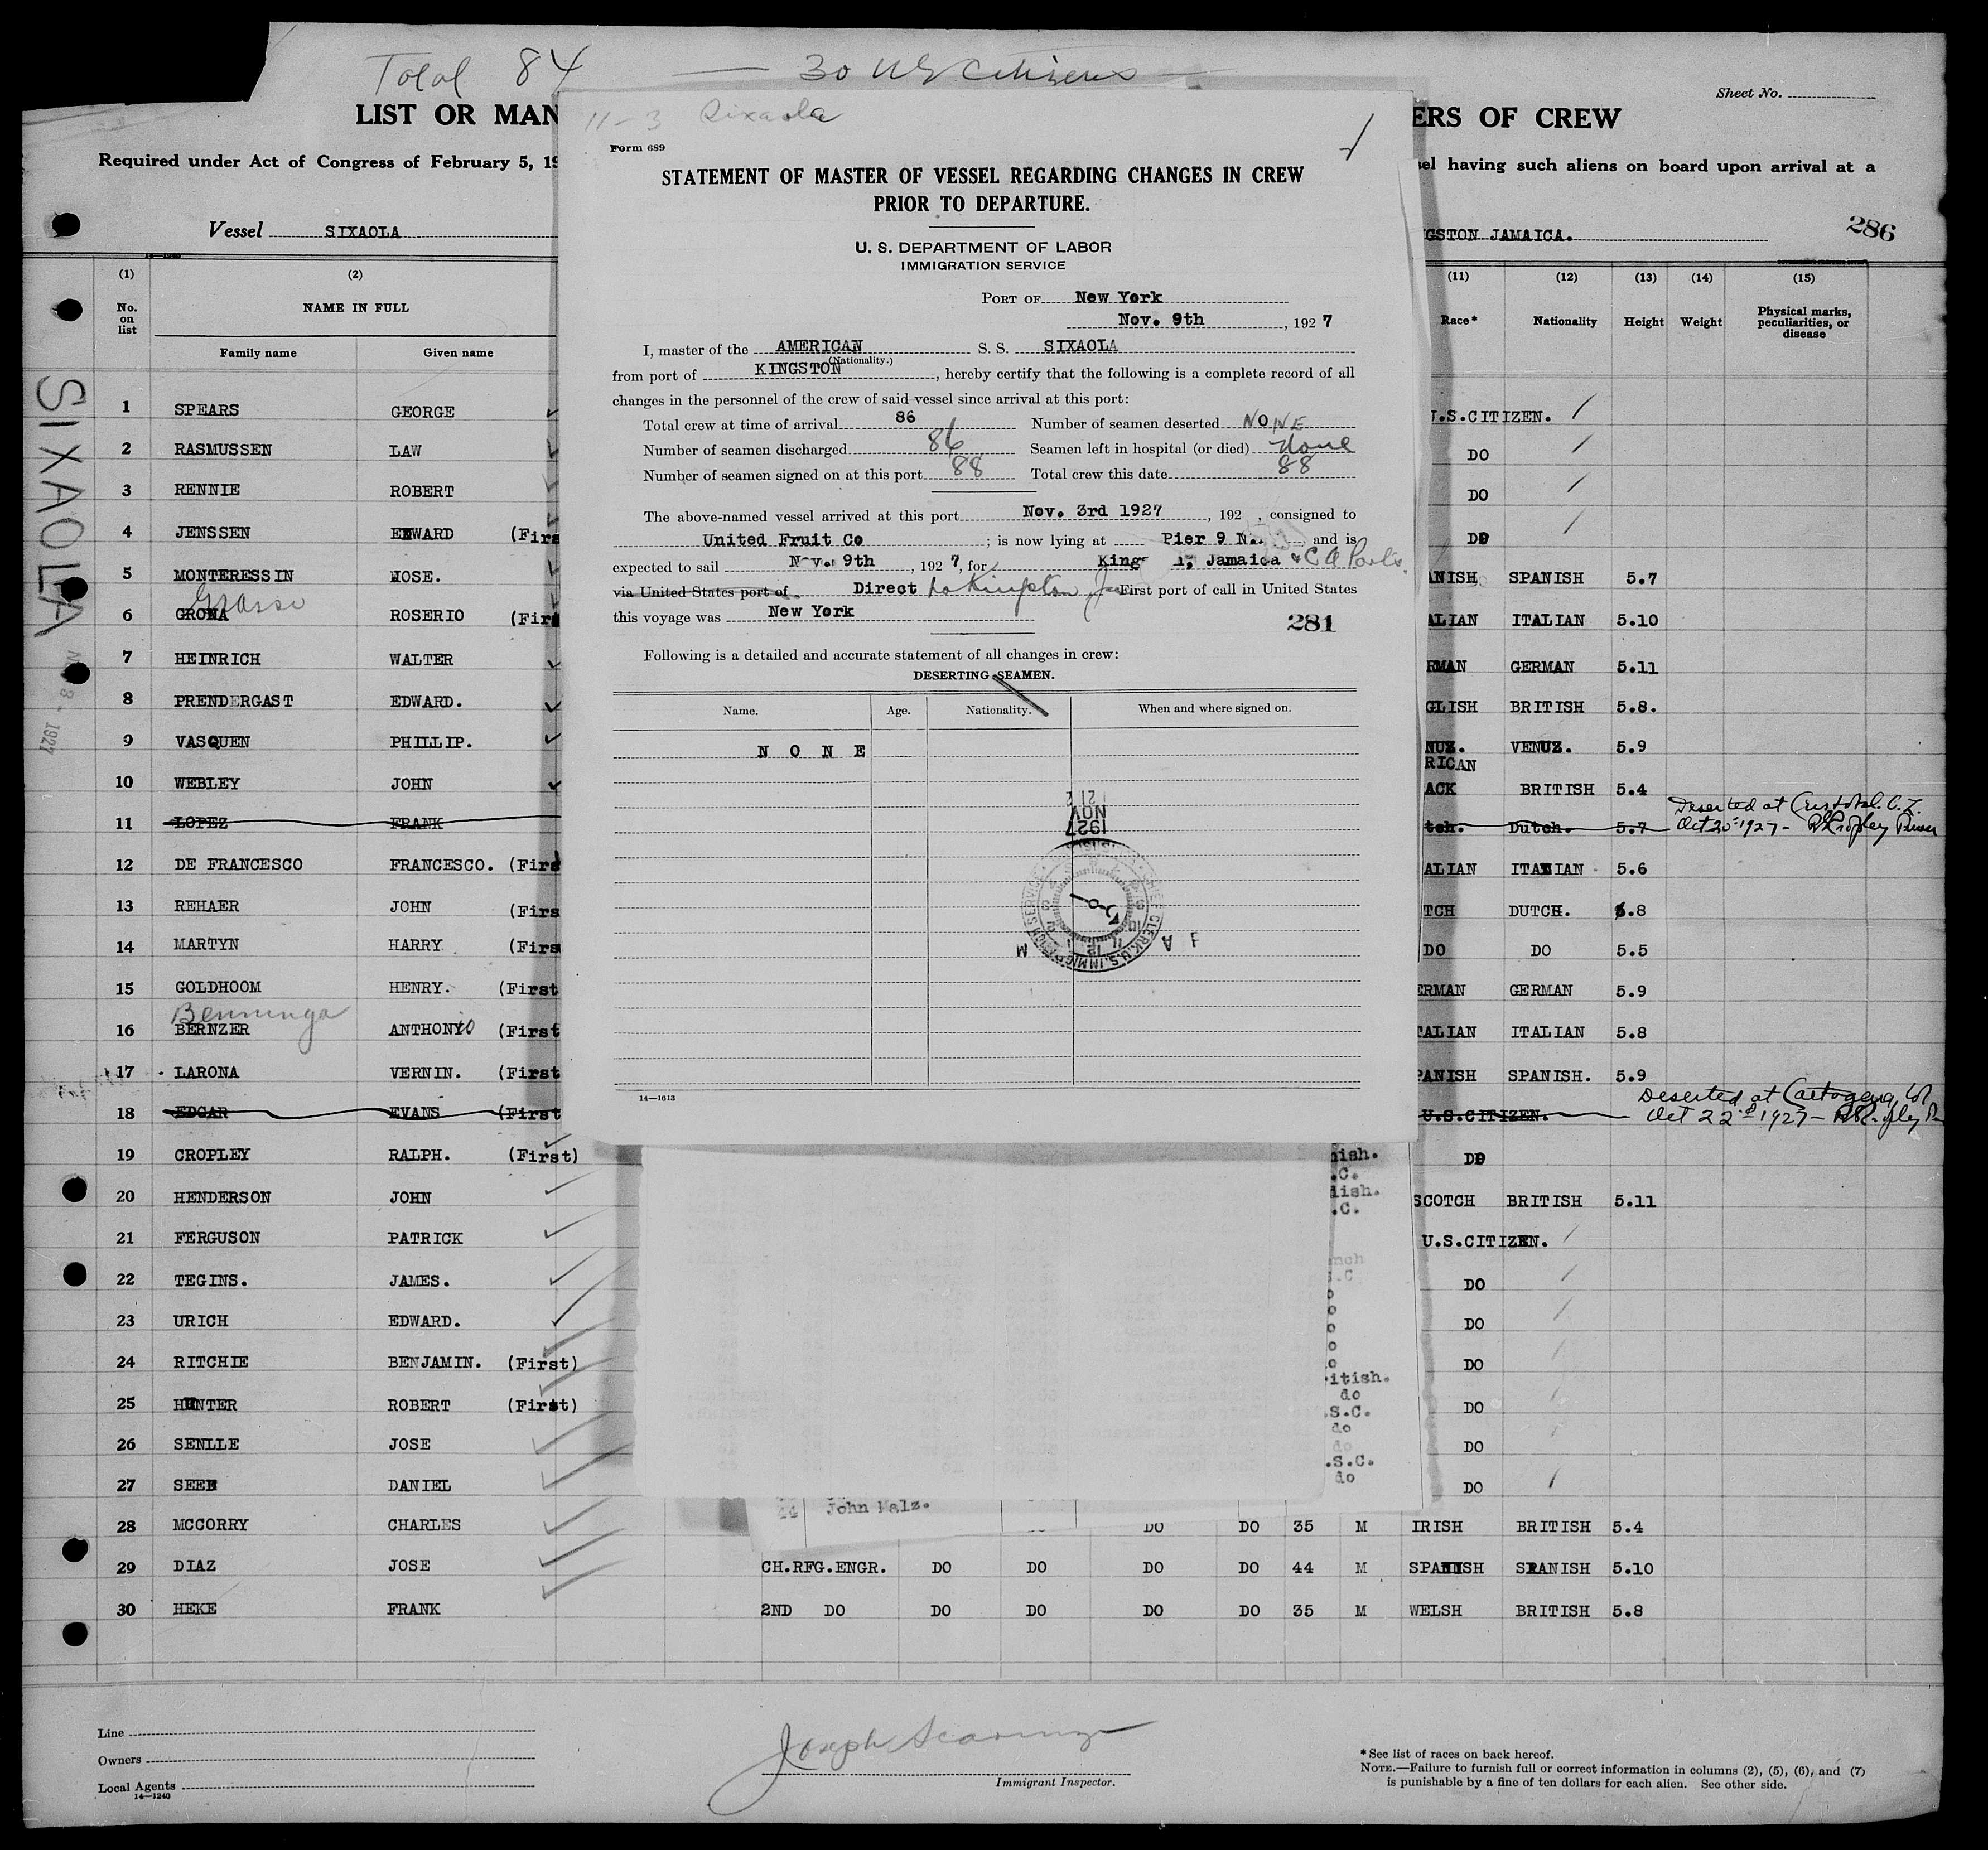 Total 84 — 30 US Citizens —
Sheet No.
LIST OR MAN
ERS OF CREW
Required under Act of Congress of February 5, 19
sel having such aliens on board upon arrival at a
Vessel SIXAOLA
GSTON JAMAICA.
286
SIXAOLA
1927
(1) (2)
No. on list
NAME IN FULL
Family name Given name
(11) (12) (13) (14) (15)
Race* Nationality Height Weight Physical marks, peculiarities, or disease
11-3 Sixaola
Form 689
STATEMENT OF MASTER OF VESSEL REGARDING CHANGES IN CREW
PRIOR TO DEPARTURE.
U. S. DEPARTMENT OF LABOR
IMMIGRATION SERVICE
PORT OF New York
Nov. 9th, 1927
I, master of the AMERICAN S. S. SIXAOLA
(Nationality.)
from port of KINGSTON, hereby certify that the following is a complete record of all
changes in the personnel of the crew of said vessel since arrival at this port:
Total crew at time of arrival 86 Number of seamen deserted NONE
Number of seamen discharged 86 Seamen left in hospital (or died) None
Number of seamen signed on at this port 88 Total crew this date 88
The above-named vessel arrived at this port Nov. 3rd 1927, 192 , consigned to
United Fruit Co ; is now lying at Pier 9 N. and is
expected to sail Nov. 9th, 1927, for King n, Jamaica & C A Ports.
via United States port of Direct to Kingston Jam First port of call in United States
this voyage was New York
281
Following is a detailed and accurate statement of all changes in crew:
DESERTING SEAMEN.
Name. Age. Nationality. When and where signed on.
N O N E
NOV
1927
CHIEF CLERK U.S. IMMIGRATION SERVICE
A M
14—1613
1 SPEARS GEORGE U.S.CITIZEN.
2 RASMUSSEN LAW DO
3 RENNIE ROBERT DO
4 JENSSEN EDWARD (Firs DO
5 MONTERESSIN JOSE. ANISH SPANISH 5.7
Grasso
6 GRONA ROSERIO (Firs ALIAN ITALIAN 5.10
7 HEINRICH WALTER RMAN GERMAN 5.11
8 PRENDERGAST EDWARD. GLISH BRITISH 5.8.
9 VASQUEN PHILLIP. NUZ. VENUZ. 5.9
RICAN
10 WEBLEY JOHN ACK BRITISH 5.4
11 LOPEZ FRANK tch. Dutch. 5.7 Deserted at Cristobal. C.Z.
Oct 20th 1927 - R Cropley Purser
12 DE FRANCESCO FRANCESCO. (Firs ALIAN ITALIAN 5.6
13 REHAER JOHN (Firs TCH DUTCH. 5.8
14 MARTYN HARRY (Firs DO DO 5.5
15 GOLDHOOM HENRY. (First ERMAN GERMAN 5.9
Benninga
16 BERNZER ANTHONIO (First TALIAN ITALIAN 5.8
17 LARONA VERNIN. (First PANISH SPANISH. 5.9
18 EDGAR EVANS (First U.S.CITIZEN. Deserted at Cartagena, Col
Oct 22nd 1927 - R Cropley Pu
19 CROPLEY RALPH. (First) DO
20 HENDERSON JOHN SCOTCH BRITISH 5.11
21 FERGUSON PATRICK U.S.CITIZEN.
22 TEGINS. JAMES. DO
23 URICH EDWARD. DO
24 RITCHIE BENJAMIN. (First) DO
25 HUNTER ROBERT (First) DO
26 SENLLE JOSE DO
27 SEEH DANIEL DO
nish.
.C.
lish.
.C.
nch
S.C
o
o
o
o
o
itish.
do
.S.C.
do
do
.S.C.
do
44 John Malz.
28 MCCORRY CHARLES DO DO 35 M IRISH BRITISH 5.4
29 DIAZ JOSE CH.RFG.ENGR. DO DO DO DO 44 M SPANISH SPANISH 5.10
30 HEKE FRANK 2ND DO DO DO DO DO 35 M WELSH BRITISH 5.8
Line
Owners
Local Agents
14—1240
Joseph
Immigrant Inspector.
* See list of races on back hereof.
NOTE.—Failure to furnish full or correct information in columns (2), (5), (6), and (7)
is punishable by a fine of ten dollars for each alien. See other side.